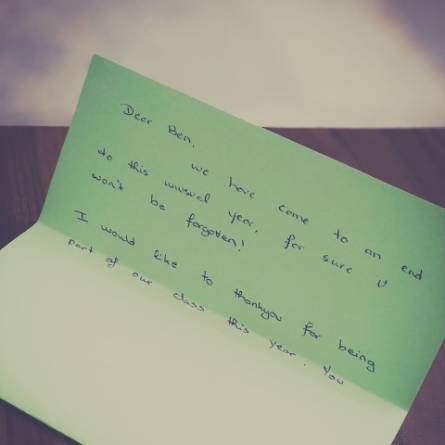 Dear Ben,
we have come to an end
to this unusual year, for sure it
won't be forgotten!
I would like to thankyou for being
part of our class this year. You